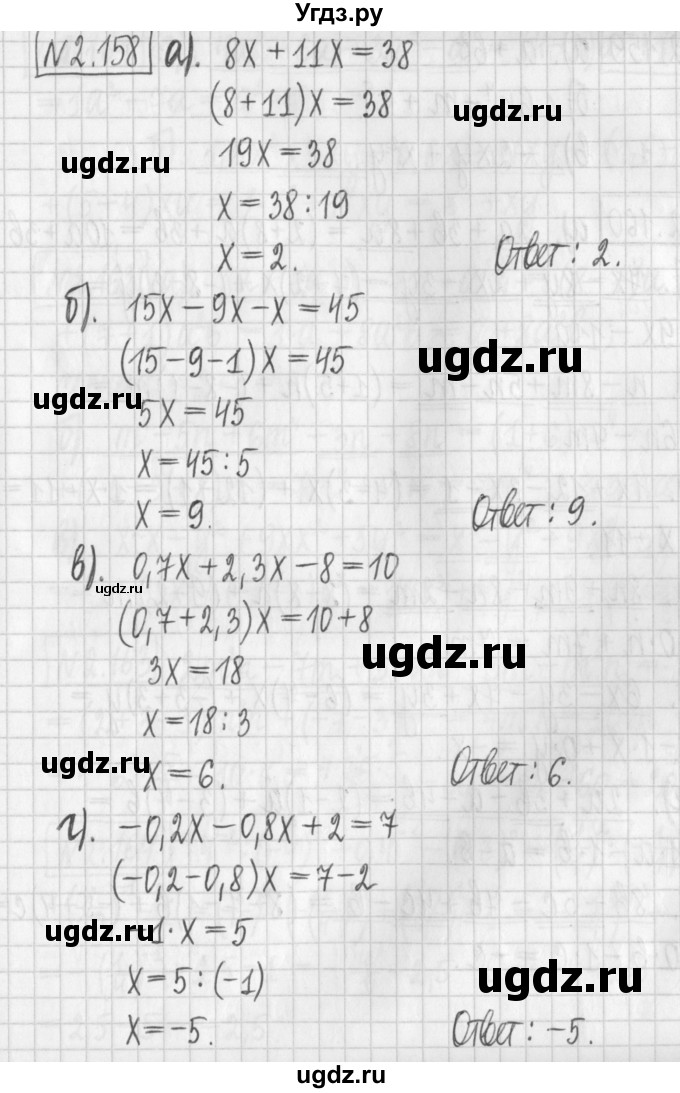 Угдз.ру
№2.158 а). 8x + 11x = 38
(8+11)x = 38
ugdz.ru
19x = 38
ugdz.ru
x = 38 : 19
x = 2. Ответ: 2.
б). 15x − 9x − x = 45
(15−9−1)x = 45
ugdz.ru
ugdz.ru
5x = 45
x = 45 : 5
x = 9. Ответ: 9.
в). 0,7x + 2,3x − 8 = 10
ugdz.ru
(0,7+2,3)x = 10+8
ugdz.ru
3x = 18
x = 18 : 3
ugdz.ru
x = 6. Ответ: 6.
г). −0,2x − 0,8x + 2 = 7
(−0,2−0,8)x = 7−2
ugdz.ru
1· x = 5
x = 5 : (−1)
ugdz.ru
x = −5. Ответ: −5.
ugdz.ru